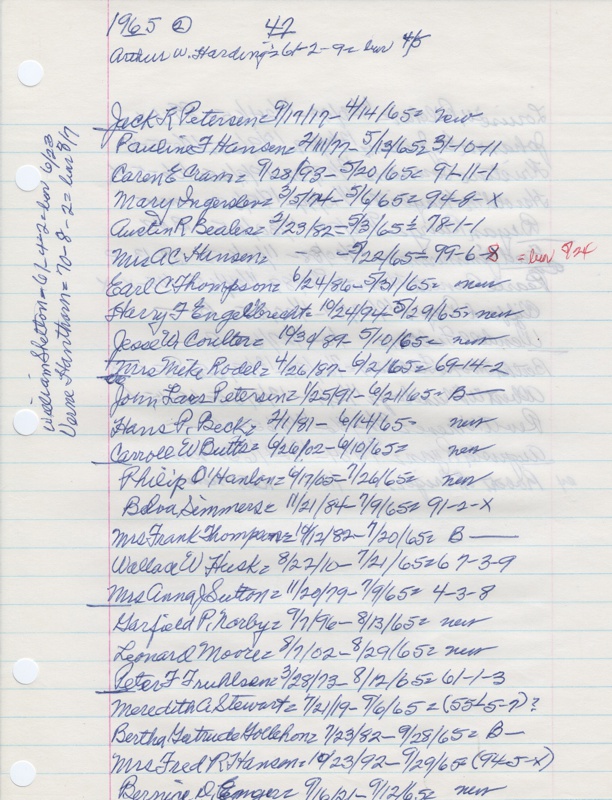 1965 ② 47
Arthur W. Harding = 61-2-9 = bur 4/5
Jack R Petersen = 9/17/17 - 4/14/65 = new
Pauline F Hansen = 2/11/77 - 5/13/65 = 31-10-11
Caren E Cram = 9/28/93 - 5/20/65 = 91-11-1
Mary = 3/5/74 - 5/6/65 = 94-8-X
Austin R Beales = 2/23/82 = 5/3/65 = 78-1-1
Mrs A C Hansen = - - 5/22/65 = 99-6-8 = bur 5/24
Earl C Thompson = 6/24/86 - 5/31/65 = new
Harry F Engelbrecht = 10/24/94 - 5/29/65 = new
Jesse W Coulter = 10/30/89 - 5/10/65 = new
Mrs Mike Rodel = 4/26/87 - 6/2/65 = 69-14-2
John Lars Petersen = 1/25/91 - 6/21/65 = B—
Hans P. Beck = 2/1/81 - 6/14/65 = new
Carroll W Butts = 6/26/02 - 6/10/65 = new
Philip O'Hanlon = 4/17/05 - 7/26/65 = new
Belva Simmers = 11/21/84 - 7/9/65 = 91-2-X
Mrs Frank Thompson = 10/12/82 - 7/20/65 = B—
Wallace W Husk = 8/22/10 - 7/21/65 = 67-3-9
Mrs Anna J Sutton = 11/20/79 - 7/9/65 = 4-3-8
Garfield P. Norby = 9/7/96 - 8/13/65 = new
Leonard Moore = 8/7/02 - 8/29/65 = new
Peter F Fruhlsen = 3/28/73 - 8/12/65 = 61-1-3
Meredith A Stewart = 7/21/19 - 9/6/65 = (55-5-7)?
Bertha Gertrude Gollehon = 7/23/82 - 9/28/65 = B—
Mrs Fred R Hansen = 10/23/92 - 9/29/65 = (94-5-X)
Bernice D. = 9/16/21 - 9/12/65 = new
William Shelton = 61-4-2 = bur 6/23
Verne Hawthorn = 70-8-2 = bur 5/7